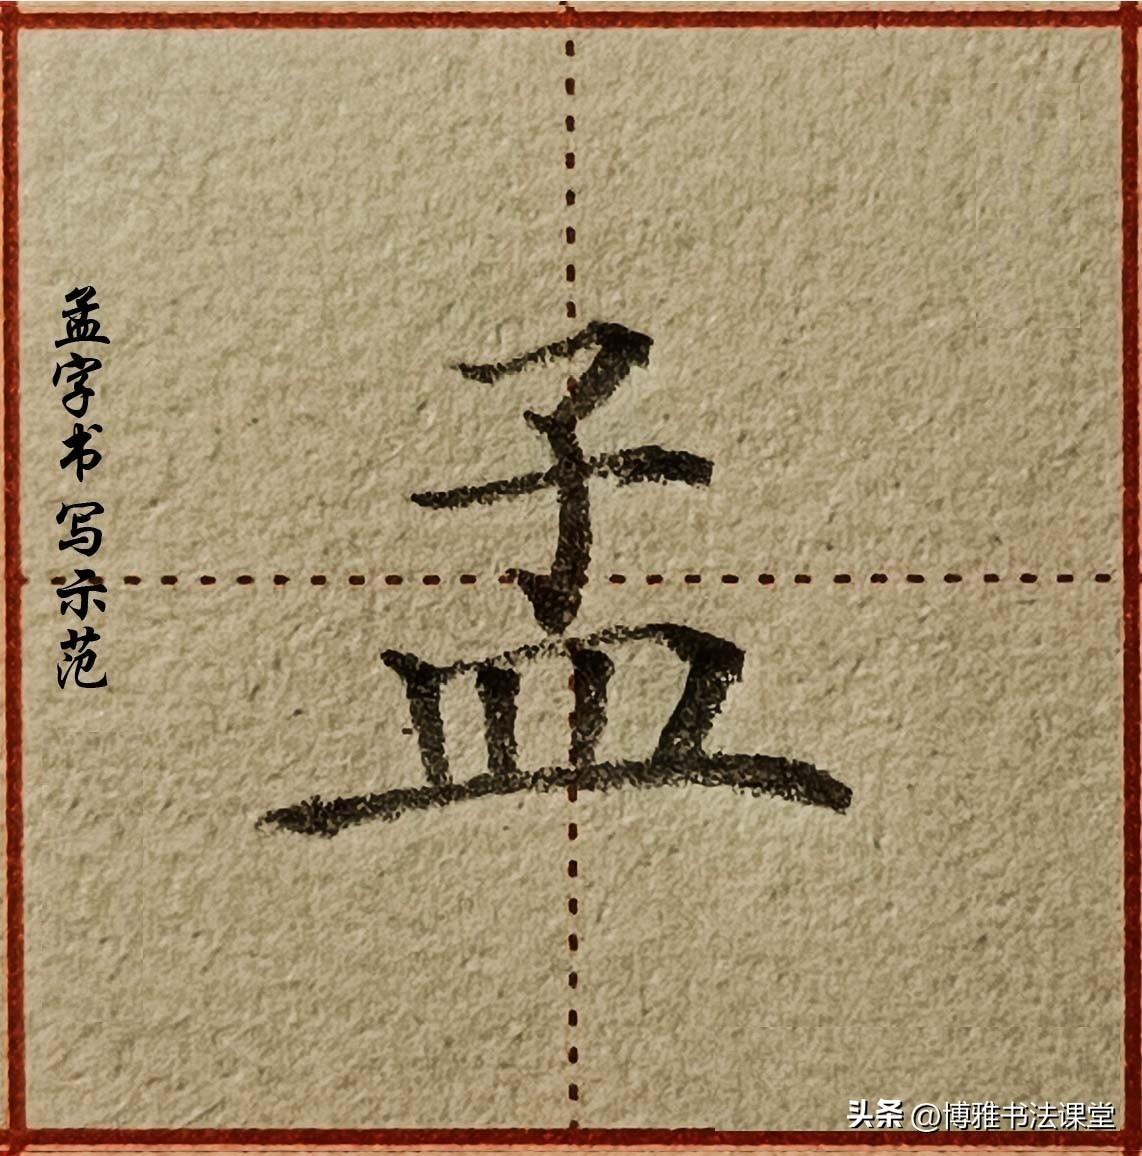 孟字书写示范
孟
头条 @博雅书法课堂